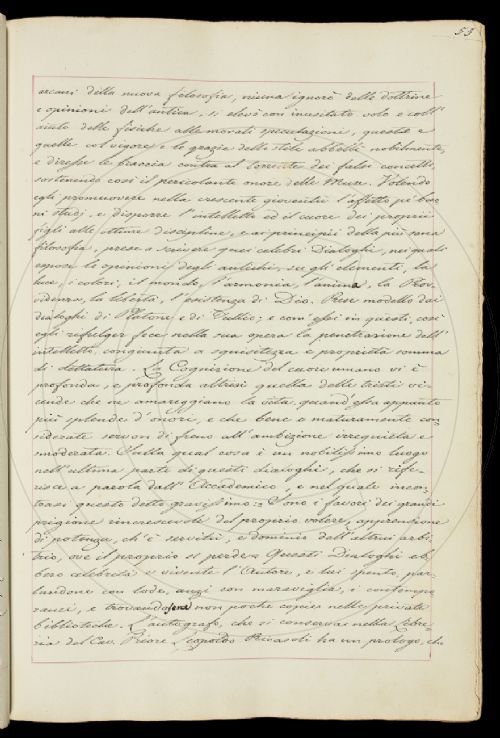 55
arcani della nuova filosofia, niuna ignorò delle dottrine
e opinioni dell'antica, si elevò con inusitato volo e coll'
aiuto delle fisiche alle morali speculazioni, queste e
quelle col vigore e le grazie dello stile abbellì nobilmente,
e diresse le braccia contro al torrente dei falsi concetti,
sostenendo così il pericolante onore delle Muse. Volendo
egli promuovere nella crescente gioventù l'affetto pe' buo-
ni studj, e disporre l'intelletto ed il cuore dei proprii
figli alle ottime discipline, e ai principii della più sana
filosofia, prese a scrivere quei celebri Dialoghi, nei quali
espose le opinioni degli antichi, su gli elementi, la
luce, i colori, il mondo, l'armonia, l'anima, la Prov-
videnza, la libertà, l'esistenza di Dio. Prese modello dai
dialoghi di Platone e di Tullio; e com'essi in questi, così
egli rifulger fece nella sua opera la penetrazione dell'
intelletto, congiunta a squisitezza e proprietà somma
di dettatura. La Cognizione del cuore umano vi è
profonda, e profonda altresì quella delle triste vi-
cende che ne amareggiano la vita quand'essa appunto
più splende d'onori, e che bene e maturamente con-
siderate servon di freno all'ambizione irrequieta e
smoderata. Sulla qual cosa è un nobilissimo luogo
nell'ultima parte di questi dialoghi, che si rife-
risce a parola dall' Accademico e nel quale incon-
trasi questo detto gravissimo: Sono i favori dei grandi
prigione rincrescevole del proprio volere, apprensione
di potenza, ch'è servitù, e dominio dell'altrui arbi-
trio, ove il proprio si perde. Questi Dialoghi eb-
bero celebrità e vivente l'Autore, e lui spento, par-
landone con lode, anzi con maraviglia, i contempo-
ranei, e trovandosene non poche copie nelle private
biblioteche. L'autografo, che si conserva nella Libre-
ria del Cav. Priore Leopoldo Ricasoli ha un prologo, che